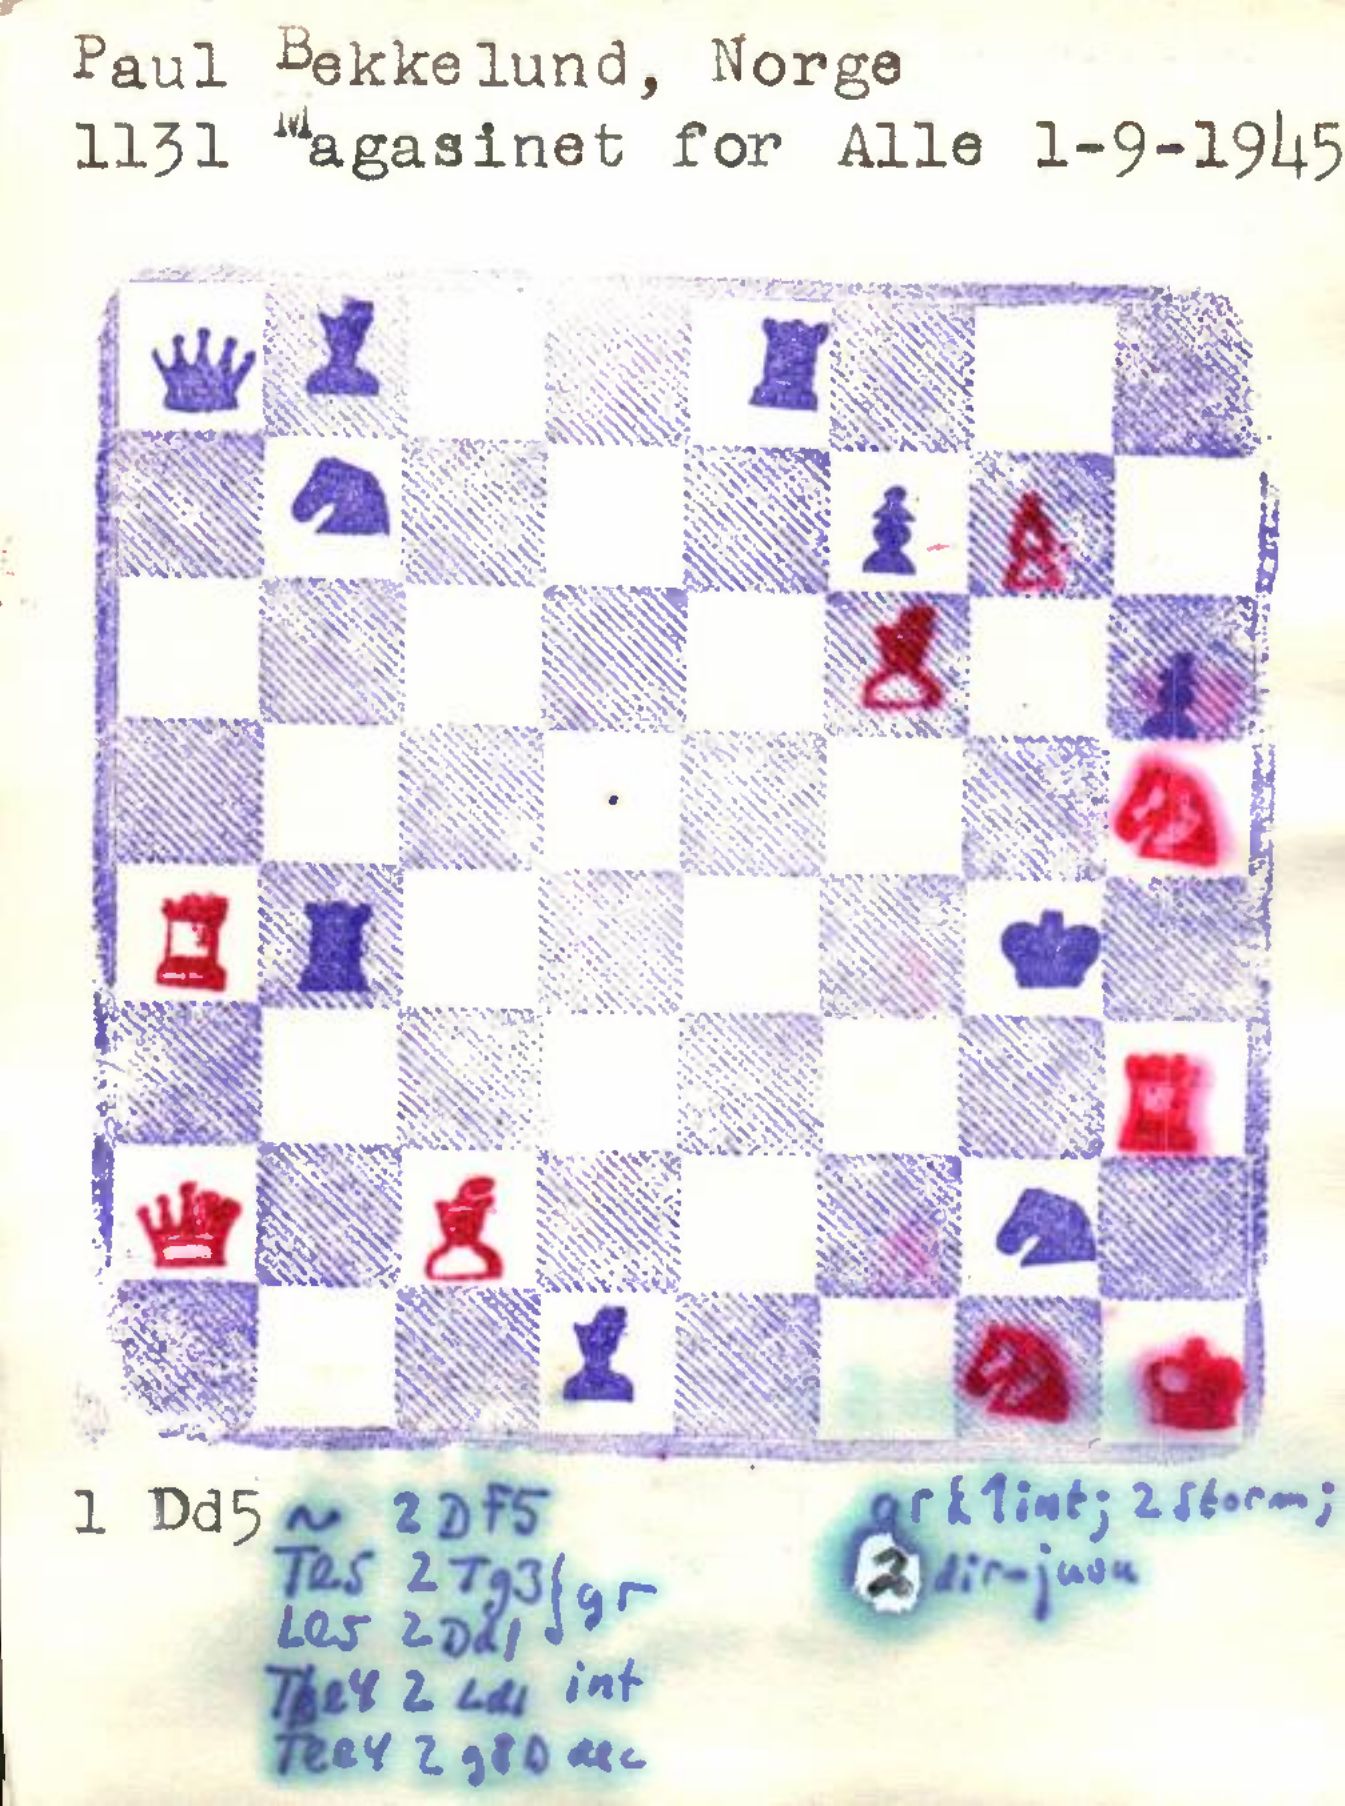 Paul Bekkelund, Norge
1131 Magasinet for Alle 1-9-1945
1 Dd5 ~ 2 Df5
Te5 2 Tg3 } gr
Le5 2 Dd1
Tbe4 2 Ld1 int
Tee4 2 g8D dec
gr & 1int; 2 Storm;
2 dir-